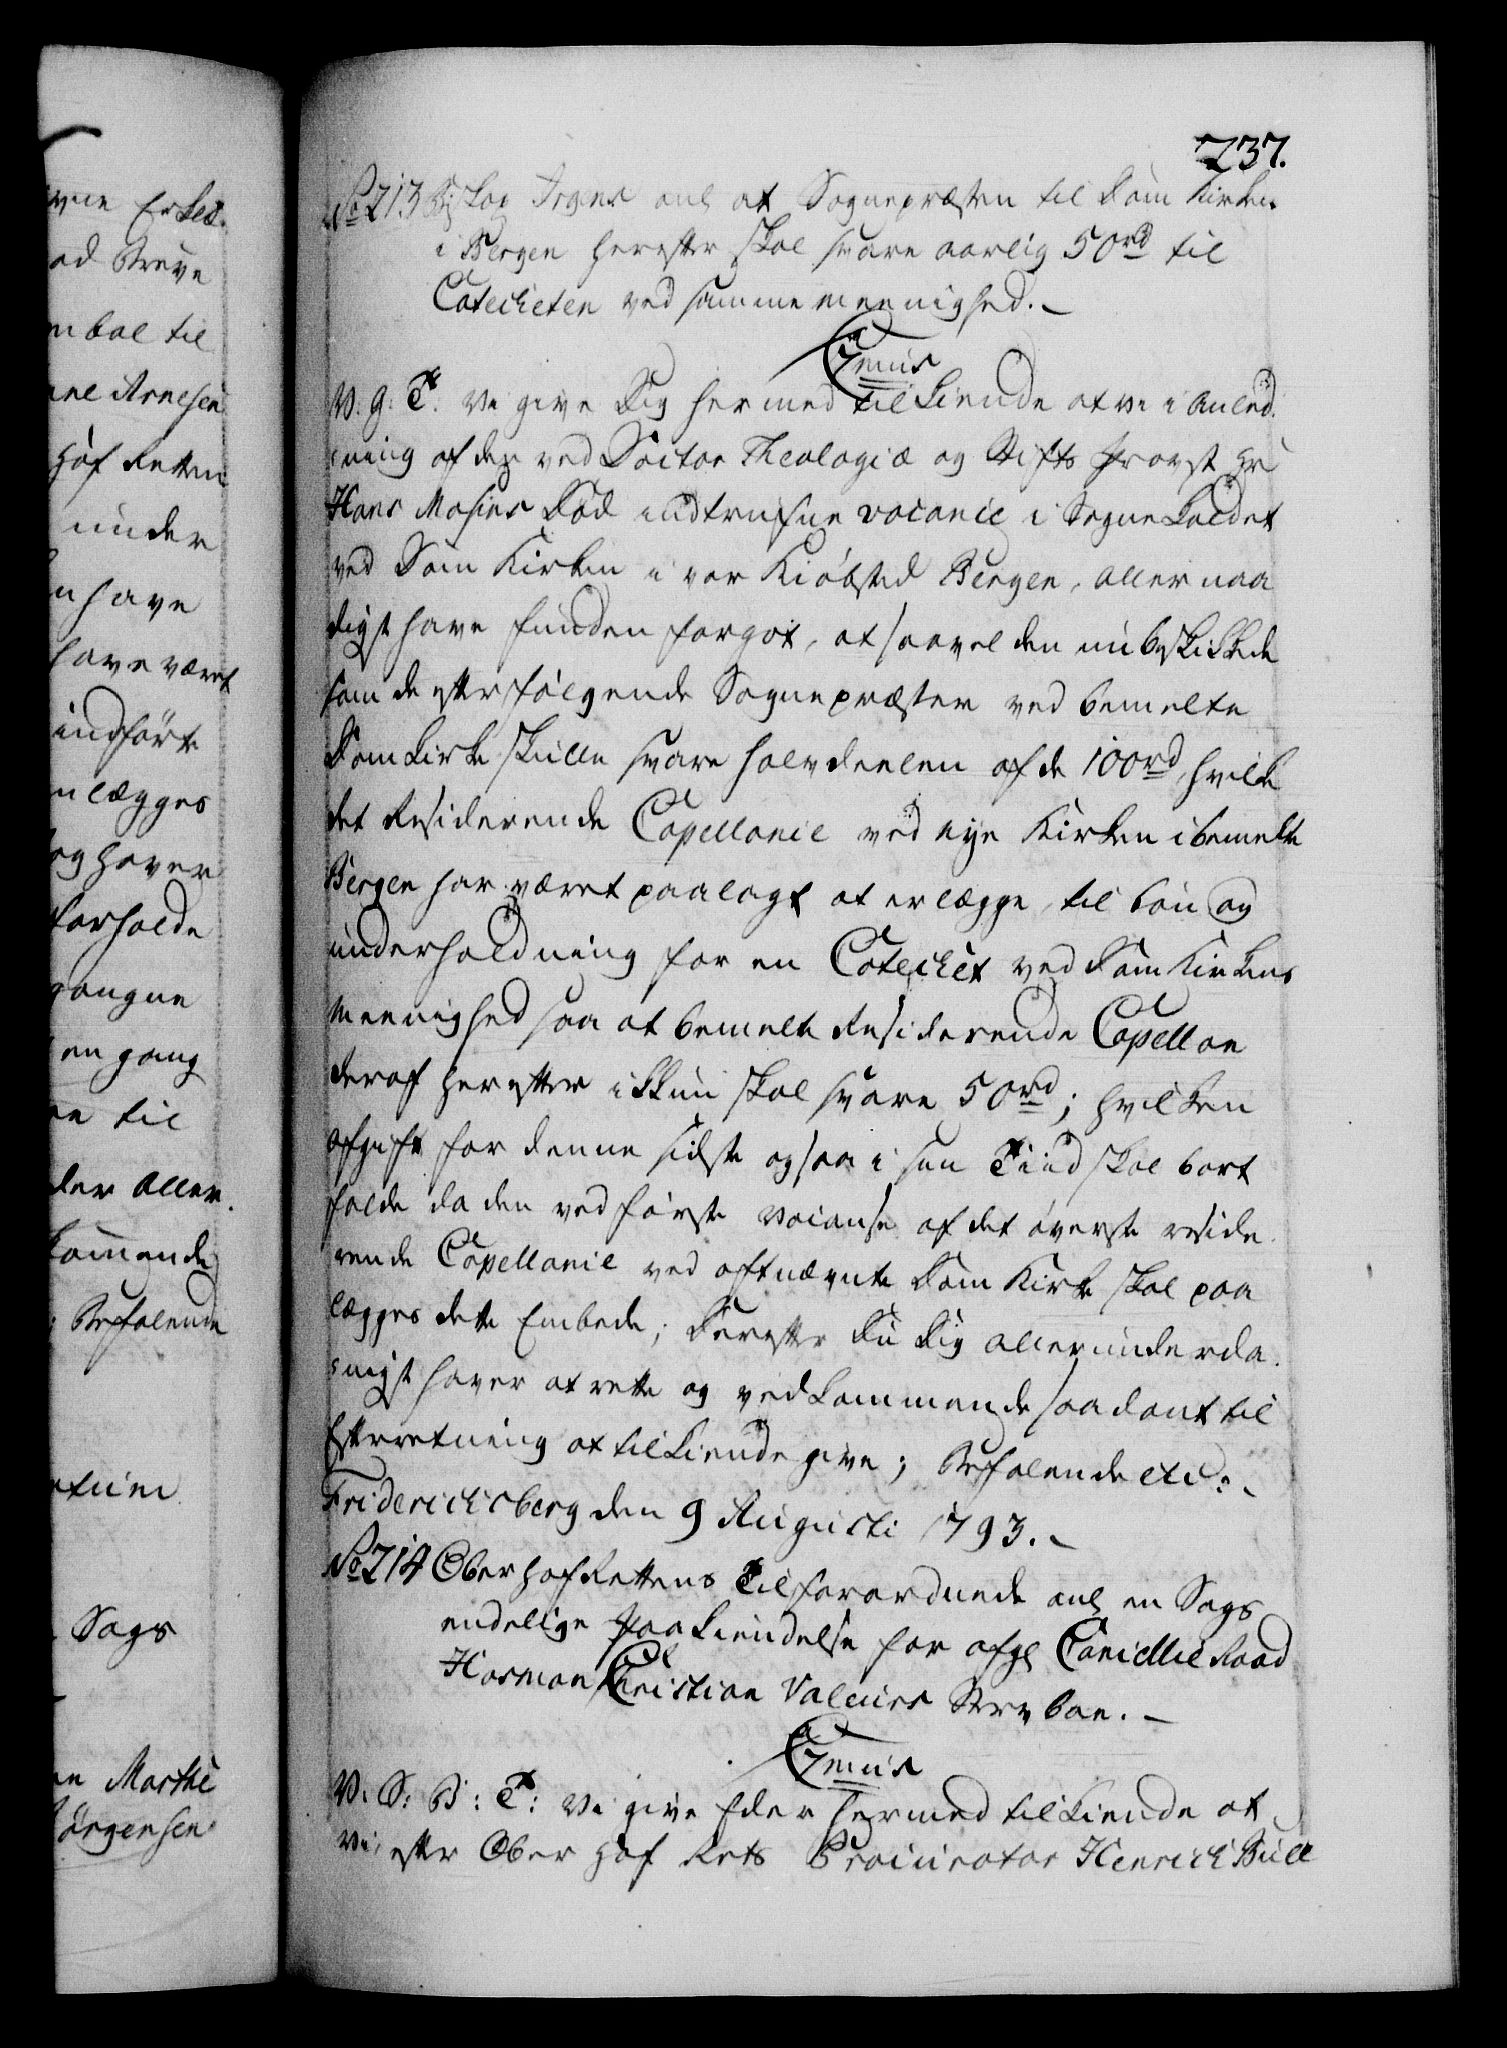 237.
vne Erkes
ad Breve
nbal til
ane Arnesen
Hof Retten
under
n have
have været
indført
nlægges
og haver
forholde
gangne
en gang
ne til
der Aller
kommende
Befalende
Sags
Marthe
Jørgensen
No 213 Biskop Irgens anl at Sognepræsten til Dom Kirken
i Bergen herefter skal svare aarlig 50 rd til
Catecheten ved samme meenighed.
C7mus
V. G. T. Vi give Dig hermed tilkiende at vi i Anled
ning af den ved Doctor Theologiæ og Stifts Provst Hr
Hans Mosins Død indtrufne vacance i Sognekaldet
ved Dom Kirken i vor Kiøbsted Bergen, allernaa
digst have funden forgot, at saavel den nu beskikkede
som de efterfølgende Sognepræster ved bemelte
Domkirke skulle svare halvdeelen af de 100 rd, hvilke
det Residerende Capellanie ved nye Kirken i bemelte
Bergen har været paalagt at erlægge til Løn og
underholdning for en Catechet ved Dom Kirkens
Meenighed saa at bemelte Residerende Capellan
deraf herefter ikkun skal svare 50 rd; hvilken
afgift for denne sidste ogsaa i sin Tiid skal bort
falde da den ved første Vacanse af det øverste reside
rende Capellanie ved oftnævnte Dom Kirke skal paa
lægges dette Embede; Derefter Du Dig allerunderda
nigst haver at rette og vedkommende saadant til
Efterretning at tilkiendegive; Befalende etc:
Friderichsberg den 9 Augusti 1793.
No 214 OberhofRettens Tilforordnede anl en Sags
endelige Paakiendelse for afg Cancellie Raad
Herman Christian Valeurs Sterboe.
C7mus
V. S. B: T: Vi give Eder hermed tilkiende at
Vi, efter Ober Hof Rets Procurator Henrich Bull